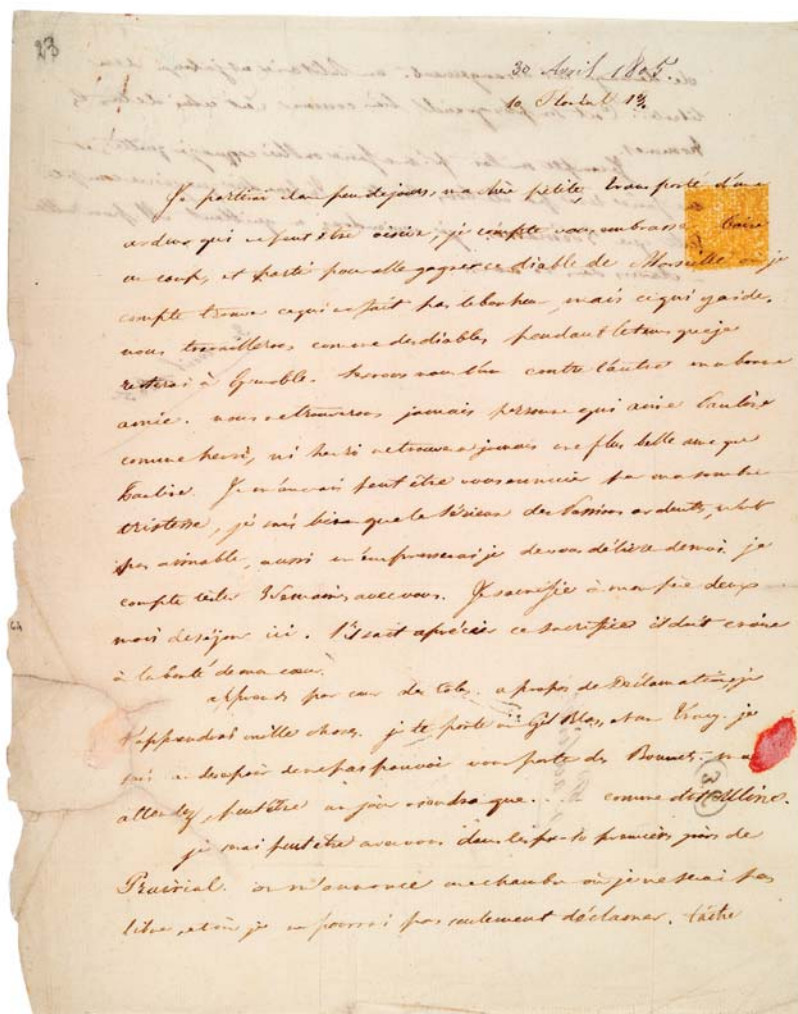 23
30 Avril 1805.
10 floréal 13
Je partirai dans peu de jours, ma chère petite, transporté d'une
ardeur qui ne peut être oisive, je compte vous embrasser, boire
un coup, et partir pour aller gagner ce diable de Marseille où je
compte trouver ce qui ne fait pas le bonheur, mais ce qui y aide.
nous travaillerons comme des diables pendant le tems que je
resterai à Grenoble. Serrons nous l'un contre l'autre ma bonne
amie. nous ne trouverons jamais personne qui aime Pauline
comme henri, ni henri ne trouvera jamais une plus belle ame que
Pauline. Je m'en vais peut être vous ennuier par ma sombre
tristesse, je sais bien que le sérieux des Passions ardentes, n'est
pas aimable, aussi m'empresserai je de vous délivrer de moi. je
compte rester 3 semaines avec vous. Je sacrifie à mon père deux
mois de séjour ici. S'il sait aprécier ce sacrifice il doit croire
à la bonté de mon cœur.
apprends par cœur des rôles. a propos de Déclamation, je
t'apprendrai mille choses. je te porte un Gil Blas, et un Tracy. je
suis au desespoir de ne pas pouvoir vous porter des Bonnets, mais
attendez, peut être un jour viendra que... comme dit
je serai peut être avec vous dans les premiers jours de
Prairial. on m'annonce une chambre où je ne serai pas
libre, et où je ne pourrai pas seulement déclamer. tâche
3